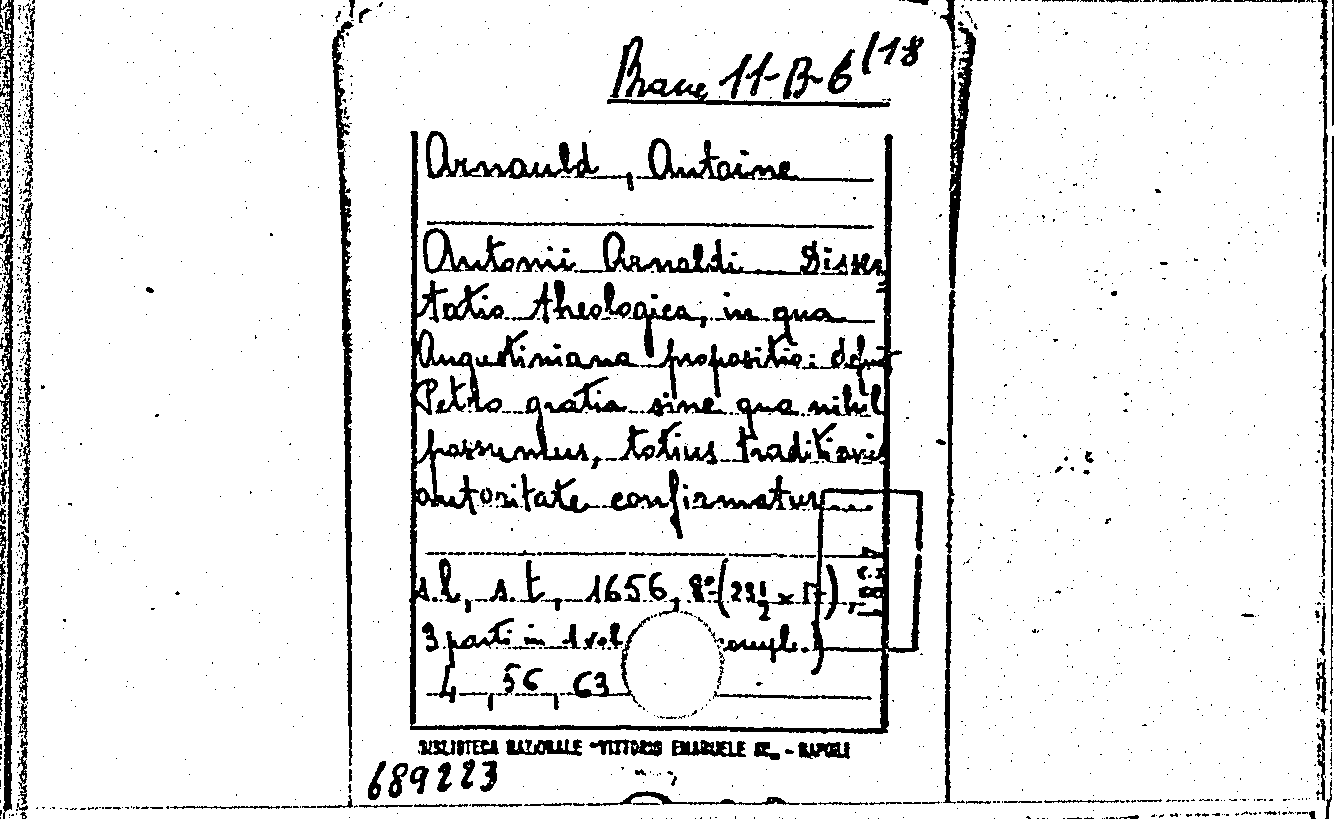 Branc. 11-B-6/18
Arnauld, Antoine
Antonii Arnaldi Disser
tatio theologica, in qua
Augustiniana propositio: defuit
Petro gratia sine qua nihil
possumus, totius traditionis
autoritate confirmatur....
s.l., s.t., 1656, 8° (23 1/2 x 17)
3 parti in 1 vol
4, 56, 63
BIBLIOTECA NAZIONALE "VITTORIO EMANUELE III" - NAPOLI
689223